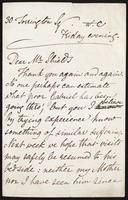 30 Torrington Sq. W.C.
Friday evening.
Dear Mr. Shields
Thank you again and again.
No one perhaps can estimate
what poor Gabriel has been
going thro', but you I believe
by trying experience know
something of similar suffering.
Next week we hope that visits
may safely be resumed to his
bedside: neither my Mother
nor I have seen him since